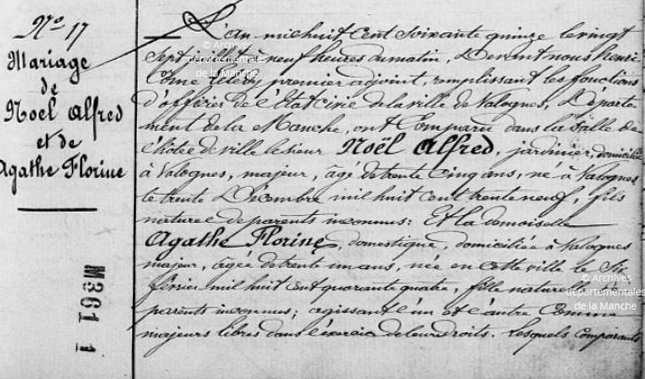 No 17
Mariage
de
Noël Alfred
et de
Agathe Florine
M361 1
L'an mil huit cent soixante quinze le vingt
sept à neuf heures du matin, Devant nous
premier adjoint, remplissant les fonctions
d'officier de l'Etat civil de la ville de Valognes, Départe
ment de la Manche, ont Comparu dans la salle de
l'hôtel de ville le sieur Noël Alfred, jardinier, domicilié
à Valognes, majeur, âgé de trente cinq ans, né à Valognes
le trente Décembre mil huit cent trente neuf, fils
naturel de parents inconnus; Et la demoiselle
Agathe Florine, domestique, domiciliée à Valognes
majeur, âgée de trente un ans, née en cette ville le Six
février mil huit cent quarante quatre, fille naturelle
parents inconnus; agissant l'un et l'autre Comme
majeurs libres dans l'exercice de leurs droits. Lesquels comparants
© Archives
départementales
de la Manche
© Archives
départementales
de la Manche